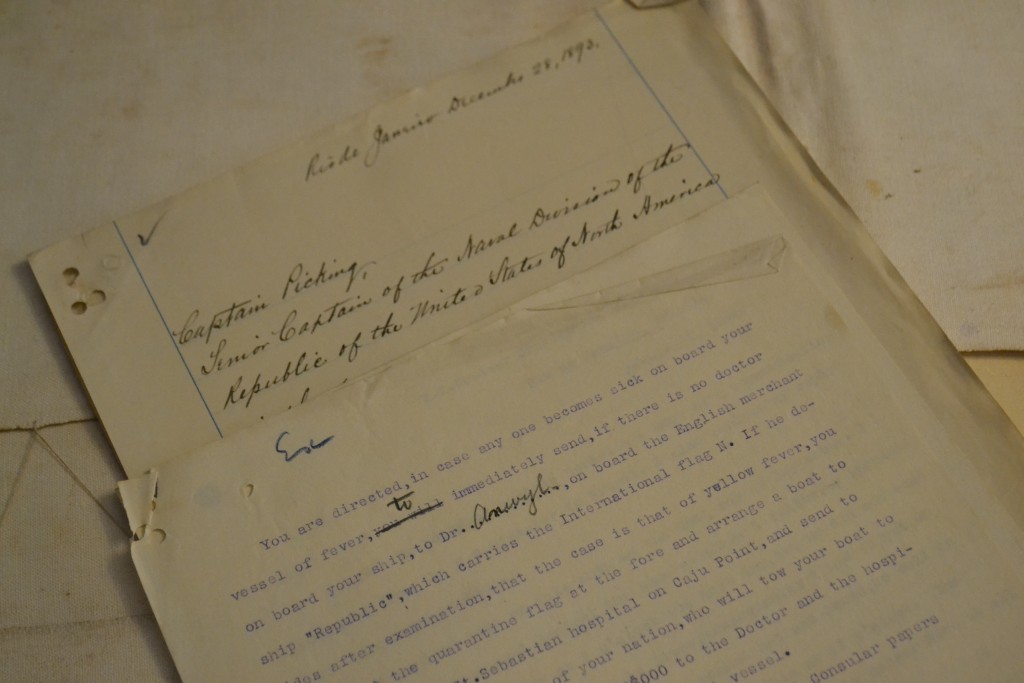 Rio de Janeiro December 28, 1893.
Captain Picking,
Senior Captain of the Naval Division of the
Republic of the United States of North America
You are directed,in case any one becomes sick on board your
vessel of fever, to immediately send,if there is no doctor
on board your ship,to Dr. ,on board the English merchant
ship "Republic",which carries the International flag N. If he de-
after examination,that the case is that of yellow fever,you
the quarantine flag at the fore and arrange a boat to
Sebastian hospital on Caju Point,and send to
of your nation,who will tow your boat to
000 to the Doctor and the hospi-
vessel.
Consular papers